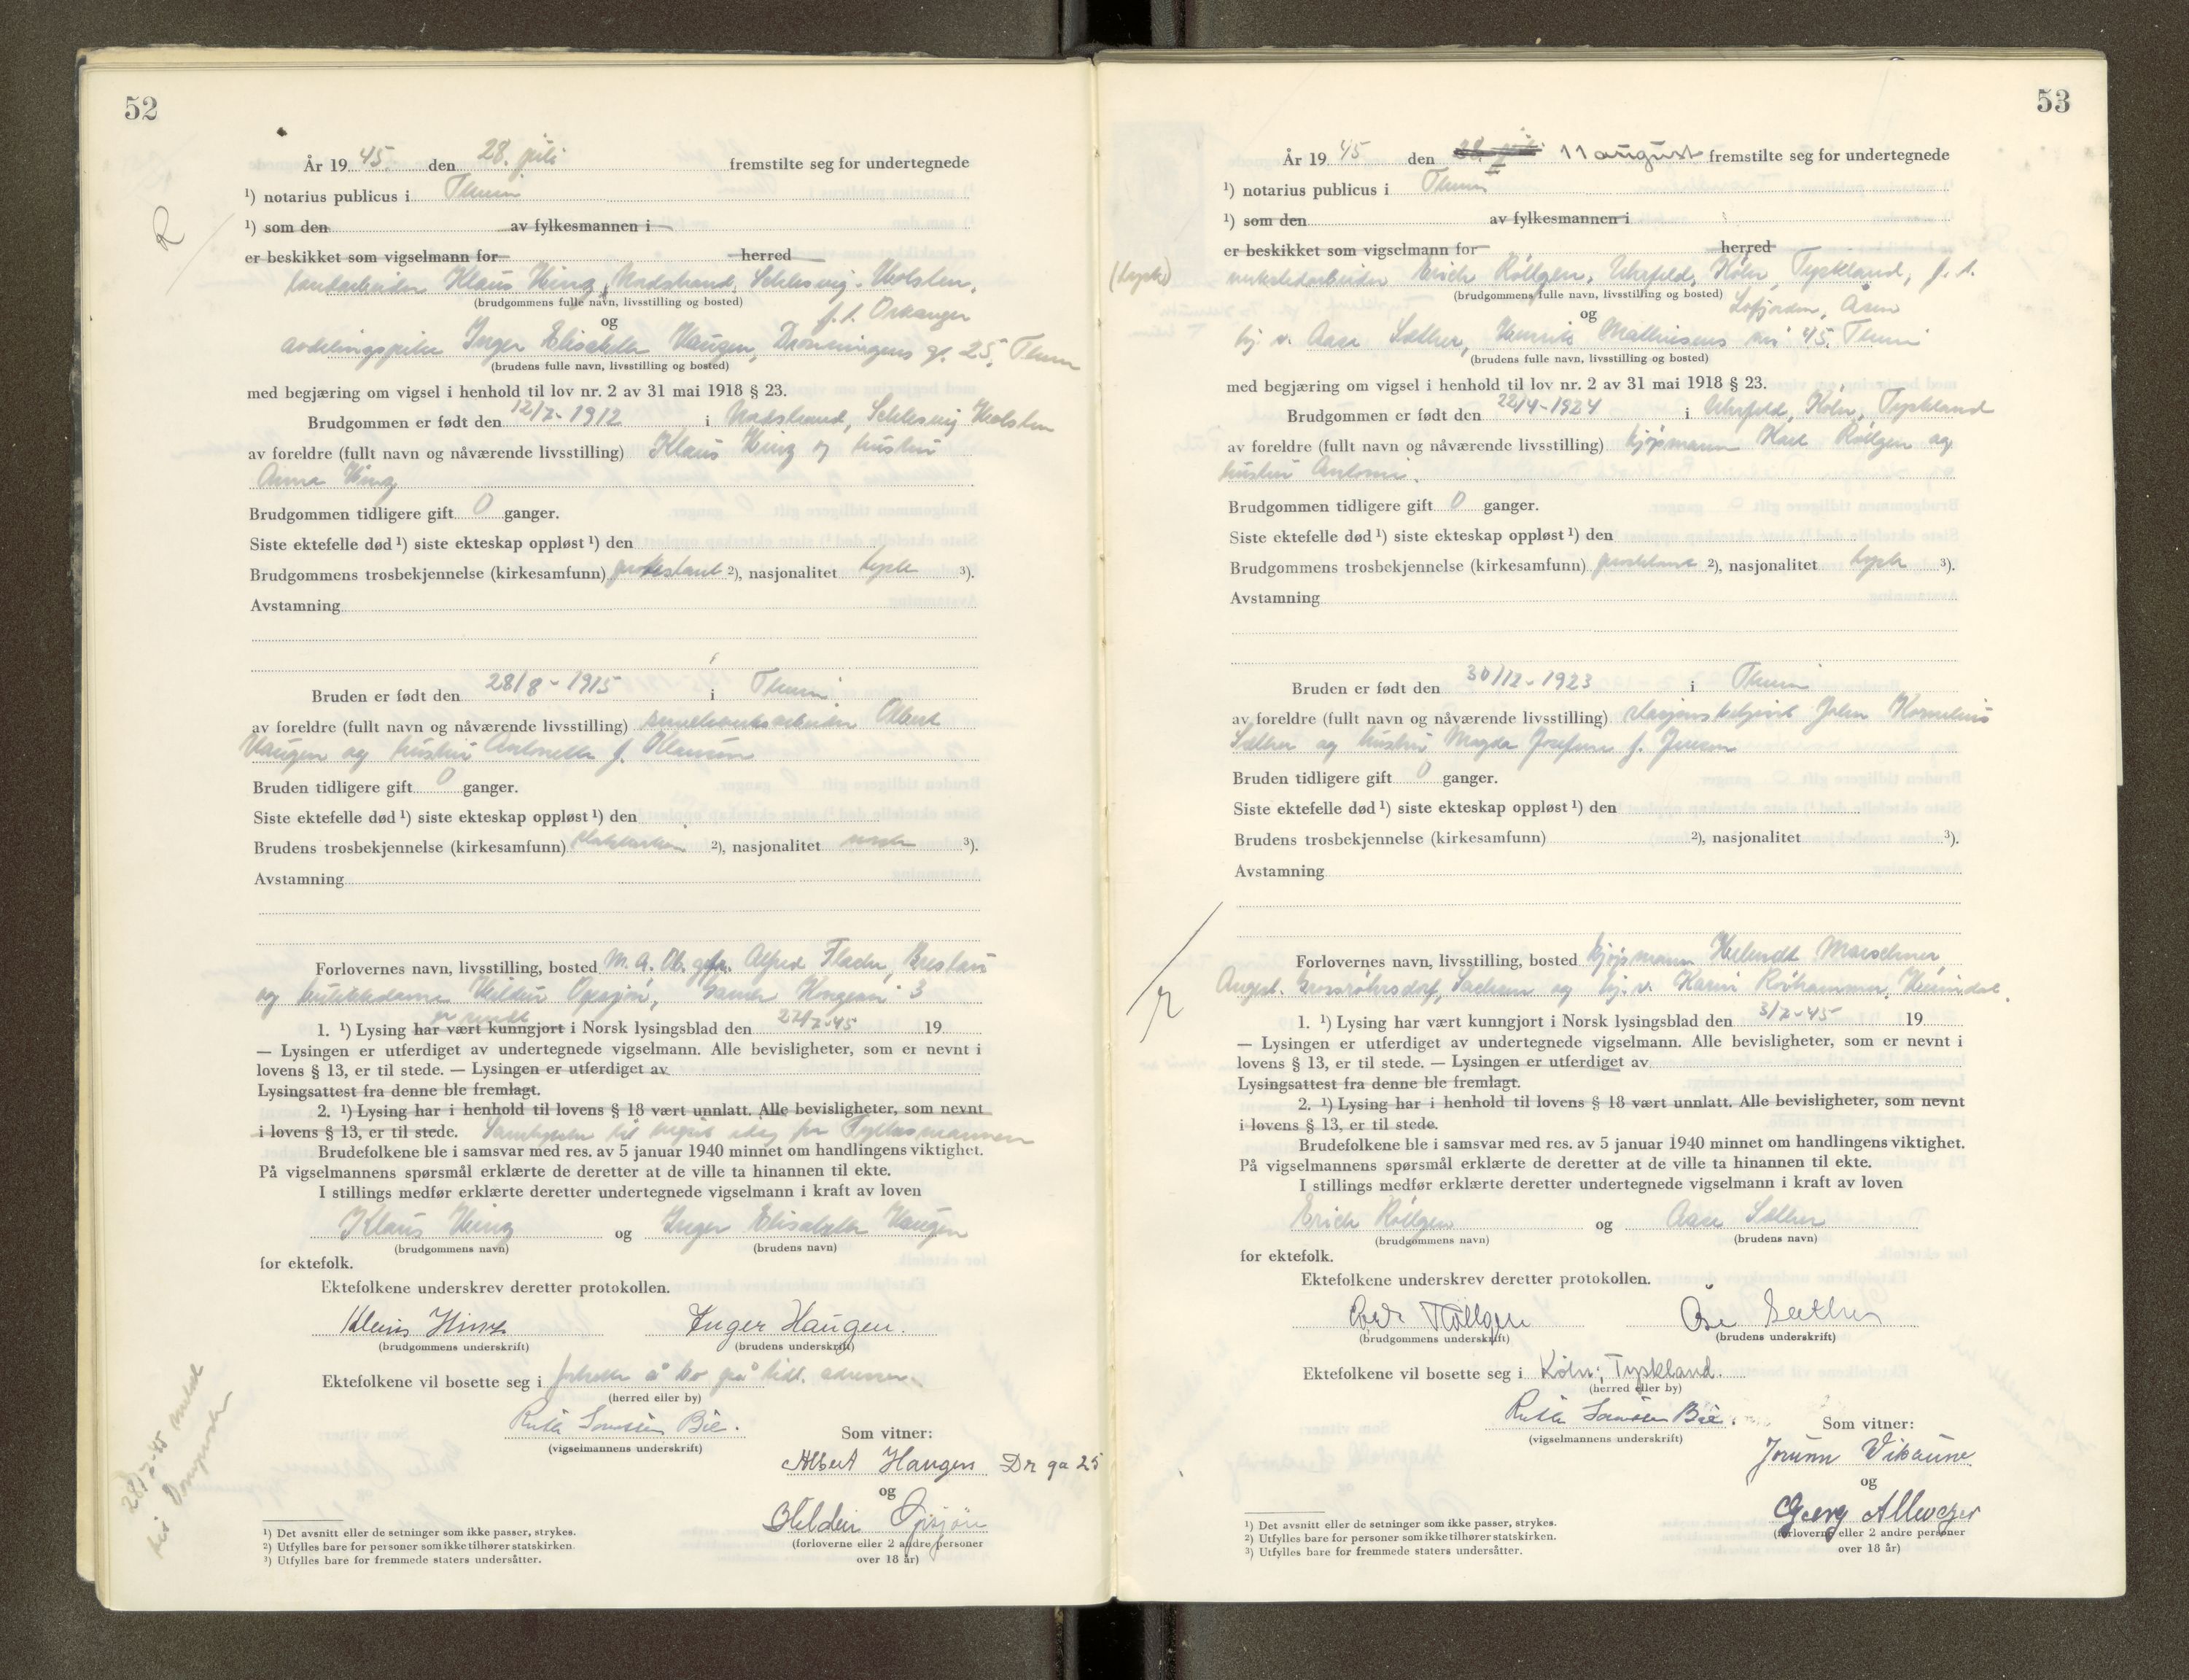 52
År 19 45. den 28. juli fremstilte seg for undertegnede
¹) notarius publicus i Theim
¹) som den av fylkesmannen i
er beskikket som vigselmann for herred
Klaus Hinz, Nordstrand, Schlesvig-Holsten,
(brudgommens fulle navn, livsstilling og bosted)
f. t. Orkanger
og
avdelingspike Inger Elisabeth Haugen, Dronningens g. 25, Theim
(brudens fulle navn, livsstilling og bosted)
med begjæring om vigsel i henhold til lov nr. 2 av 31 mai 1918 § 23.
Brudgommen er født den 12/7-1912 i Nordstrand, Schlesvig-Holsten
av foreldre (fullt navn og nåværende livsstilling) Klaus Hinz og hustru
Anna Hinz
Brudgommen tidligere gift 0 ganger.
Siste ektefelle død ¹) siste ekteskap oppløst ¹) den
Brudgommens trosbekjennelse (kirkesamfunn) protestant ²), nasjonalitet tysk ³).
Avstamning
Bruden er født den 28/8-1915 i Theim
av foreldre (fullt navn og nåværende livsstilling) Albert
Haugen og hustru Antonette f. Olaussen
Bruden tidligere gift 0 ganger.
Siste ektefelle død ¹) siste ekteskap oppløst ¹) den
Brudens trosbekjennelse (kirkesamfunn) statskirken ²), nasjonalitet norsk ³).
Avstamning
Forlovernes navn, livsstilling, bosted M. A. Ob. gefr. Alfred Flader, Breslau
og butikkdame Hildur Opsjøn, Kongens 3
er sendt
1. ¹) Lysing har vært kunngjort i Norsk lysingsblad den 27/7-45 19
— Lysingen er utferdiget av undertegnede vigselmann. Alle bevisligheter, som er nevnt i
lovens § 13, er til stede. — Lysingen er utferdiget av
Lysingsattest fra denne ble fremlagt.
2. ¹) Lysing har i henhold til lovens § 18 vært unnlatt. Alle bevisligheter, som nevnt
i lovens § 13, er til stede. Samtykke til vigsel idag fra Fylkesmannen
Brudefolkene ble i samsvar med res. av 5 januar 1940 minnet om handlingens viktighet.
På vigselmannens spørsmål erklærte de deretter at de ville ta hinannen til ekte.
I stillings medfør erklærte deretter undertegnede vigselmann i kraft av loven
Klaus Hinz og Inger Elisabeth Haugen
(brudgommens navn) (brudens navn)
for ektefolk.
Ektefolkene underskrev deretter protokollen.
Klaus Hinz Inger Haugen.
(brudgommens underskrift) (brudens underskrift)
Ektefolkene vil bosette seg i fortsetter å bo på tidl. adresser.
(herred eller by)
Ruth Bie.
(vigselmannens underskrift)
Som vitner:
Albert Haugen Dr ga 25
og
Hildur Opsjøn
(forloverne eller 2 andre personer
over 18 år)
28/7-45 meldt
¹) Det avsnitt eller de setninger som ikke passer, strykes.
²) Utfylles bare for personer som ikke tilhører statskirken.
³) Utfylles bare for fremmede staters undersåtter.
53
År 19 45 den 11 august fremstilte seg for undertegnede
¹) notarius publicus i Theim
¹) som den av fylkesmannen i
er beskikket som vigselmann for herred
(tysk) Erich Röllgen, Köln, Tyskland, f. t.
(brudgommens fulle navn, livsstilling og bosted)
Lofjorden, Åsen
og
frk. v. Aase Sæther, Henrik Mathisens vei 45, Theim
(brudens fulle navn, livsstilling og bosted)
med begjæring om vigsel i henhold til lov nr. 2 av 31 mai 1918 § 23.
Brudgommen er født den 22/4-1924 i Köln, Tyskland
av foreldre (fullt navn og nåværende livsstilling) kjøpmann Karl Röllgen og
hustru Antonie.
Brudgommen tidligere gift 0 ganger.
Siste ektefelle død ¹) siste ekteskap oppløst ¹) den
Brudgommens trosbekjennelse (kirkesamfunn) protestant ²), nasjonalitet tysk ³).
Avstamning
Bruden er født den 30/12-1923 i Theim
av foreldre (fullt navn og nåværende livsstilling) stasjonsbetjent John Kornelius
Sæther og hustru Magda Josefine f. Jensen
Bruden tidligere gift 0 ganger.
Siste ektefelle død ¹) siste ekteskap oppløst ¹) den
Brudens trosbekjennelse (kirkesamfunn) ²), nasjonalitet ³).
Avstamning
Forlovernes navn, livsstilling, bosted kjøpmann Helmudt Marschner
August. Grossröhrsdorf, Sachsen og hj. v. Karin Röhammer, Heimdal.
1. ¹) Lysing har vært kunngjort i Norsk lysingsblad den 3/7-45 19
— Lysingen er utferdiget av undertegnede vigselmann. Alle bevisligheter, som er nevnt i
lovens § 13, er til stede. — Lysingen er utferdiget av
Lysingsattest fra denne ble fremlagt.
2. ¹) Lysing har i henhold til lovens § 18 vært unnlatt. Alle bevisligheter, som nevnt
i lovens § 13, er til stede.
Brudefolkene ble i samsvar med res. av 5 januar 1940 minnet om handlingens viktighet.
På vigselmannens spørsmål erklærte de deretter at de ville ta hinannen til ekte.
I stillings medfør erklærte deretter undertegnede vigselmann i kraft av loven
Erich Röllgen og Aase Sæther
(brudgommens navn) (brudens navn)
for ektefolk.
Ektefolkene underskrev deretter protokollen.
Erich Röllgen Åse Sæther
(brudgommens underskrift) (brudens underskrift)
Ektefolkene vil bosette seg i Köln, Tyskland.
(herred eller by)
Ruth Bie.
(vigselmannens underskrift)
Som vitner:
Jorunn Vikaune
og
Georg Allwezer
(forloverne eller 2 andre personer
over 18 år)
¹) Det avsnitt eller de setninger som ikke passer, strykes.
²) Utfylles bare for personer som ikke tilhører statskirken.
³) Utfylles bare for fremmede staters undersåtter.